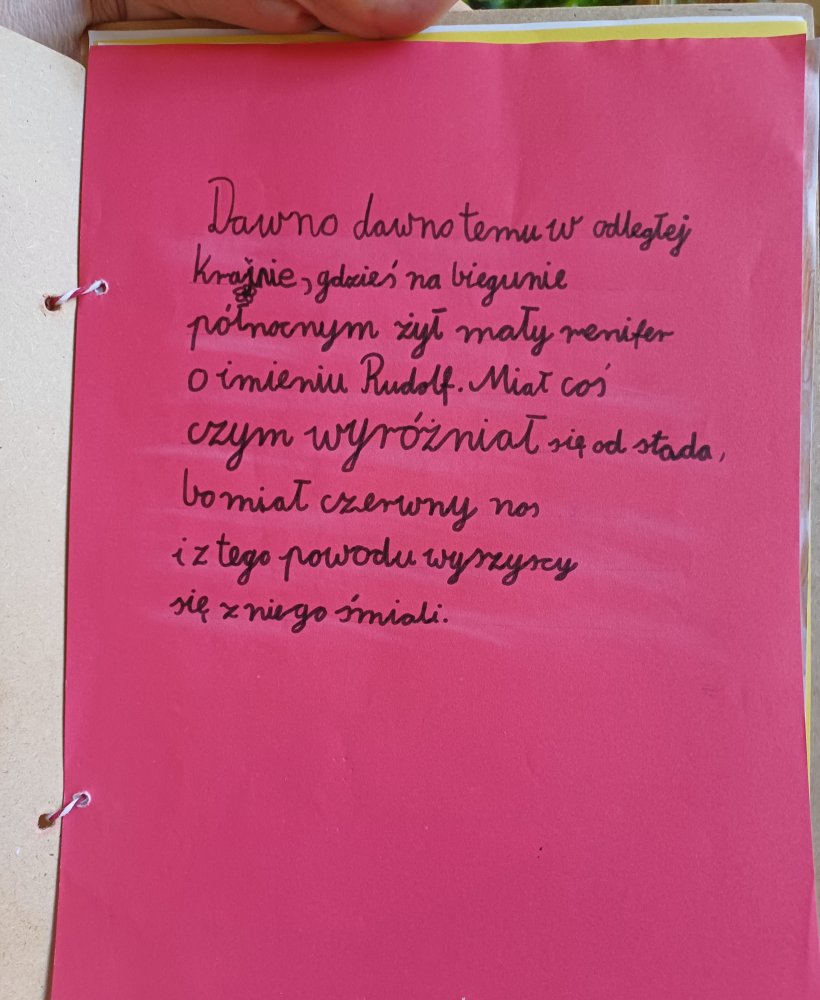 Dawno dawno temu w odległej
Krajnie, gdzieś na biegunie
północnym żył mały renifer
o imieniu Rudolf. Miał coś
czym wyróżniał się od stada,
bo miał czerwny nos
i z tego powodu wyszyscy
się z niego śmiali.